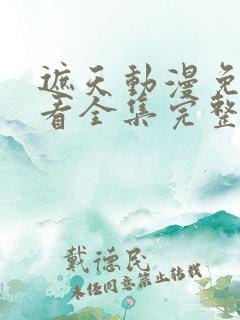 遮天動漫免
看全集完整
戴德民
未经同意禁止转载